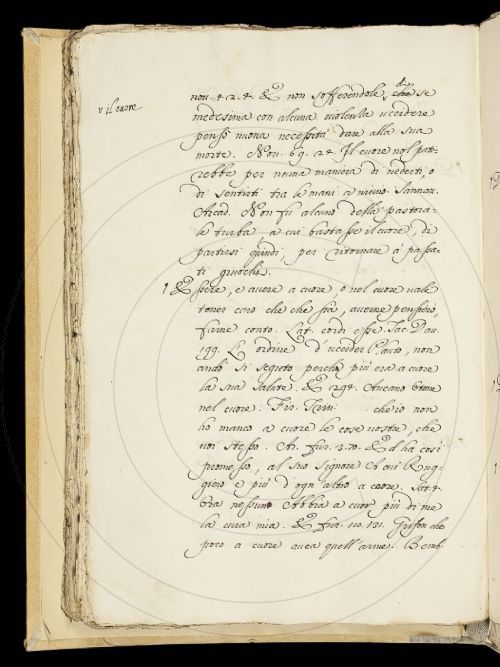 v il cuore
nov. 42. 4. E non sofferendole, che se
medesima con alcuna violenza uccidere
pensò nuova necessità dare alla sua
morte. Nov. 69. 24. Il cuore nol pati-
rebbe per niuna maniera di vederti, o
di sentirti tra le mani a niuno. Sannaz.
Arcad. Non fu alcuno della pastora-
le turba, a cui bastasse il cuore, di
partirsi quindi, per ritornare à passa-
ti giuochi.
1 Essere, e avere a cuore, o nel cuore vale
tener caro che che sia, averne pensiero,
farne conto. Lat. cordi esse. Tac. Dav.
199. L' ordine d' uccider Plauto, non
andò sì segreto perchè più era a cuore
la sua salute. E 294. Aveano Otone
nel cuore. Fir. Trin. ch' io non
ho manco a cuore le cose vostre, che
voi stesso. Ar. Fur. 3. 70. Ed ha così
promesso, al suo Signore A cui Rug-
giero è più d' ogn altro a cuore. Sat. 4.
Ora nessuno Abbra a cuor più di me
la cura mia. E Fur. 10. 131. Grifon che
poco a cuore avea quell' arme. Bemb.